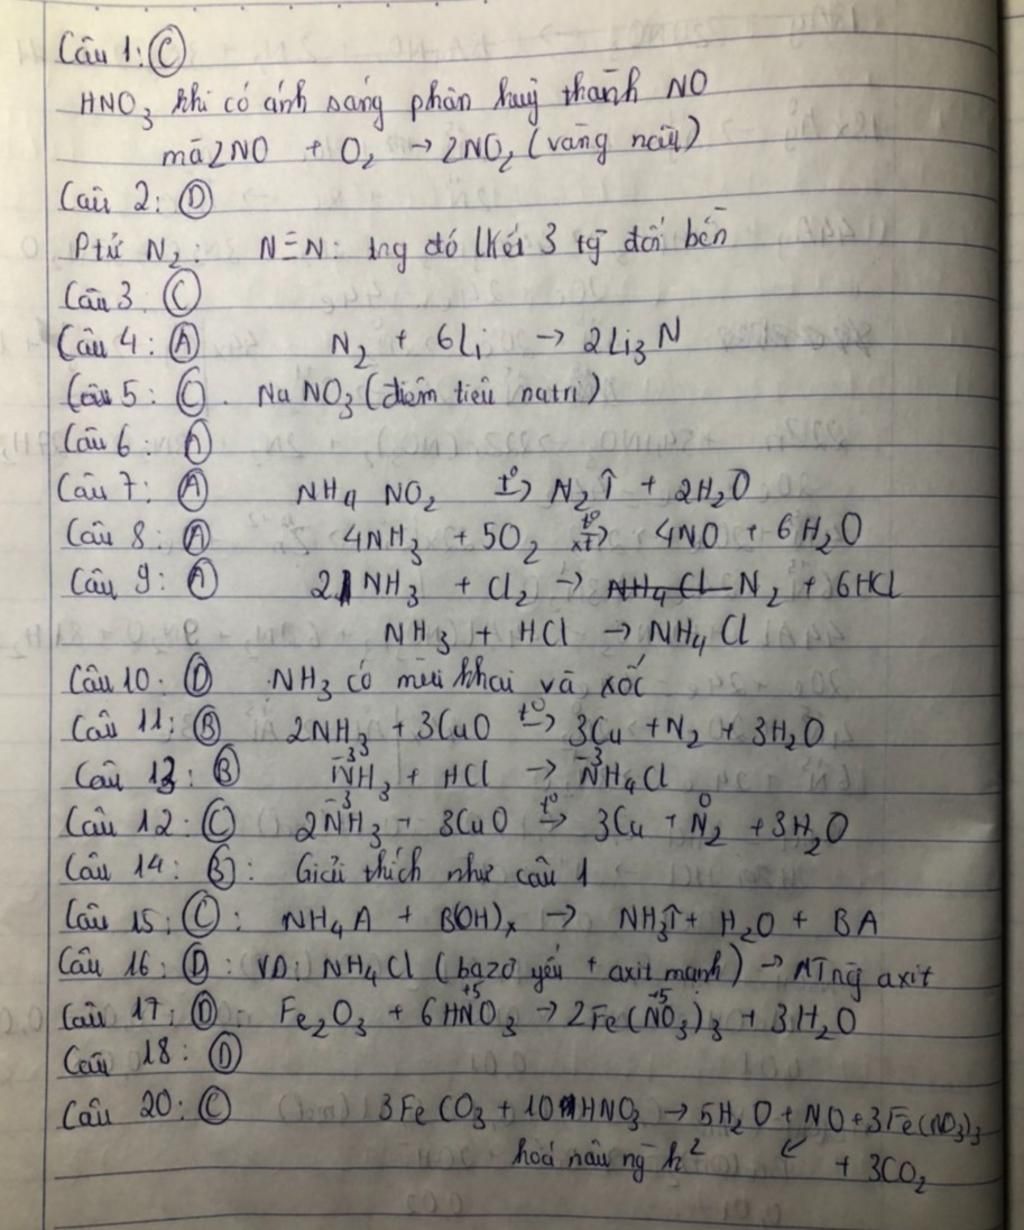 Câu 1: C
HNO3 khi có ánh sáng phân huỷ thành NO
mà 2NO + O2 → 2NO2 (vàng nâu)
Câu 2: D
Ptử N2: N≡N: trg đó lkết 3 rất bền
Câu 3. C
Câu 4: A N2 + 6Li → 2Li3N
Câu 5: C. NaNO3 (diêm tiêu natri)
Câu 6: A
Câu 7: A NH4NO2 t°→ N2↑ + 2H2O
Câu 8: A 4NH3 + 5O2 t° xt→ 4NO + 6H2O
Câu 9: A 2NH3 + Cl2 → N2 + 6HCl
NH3 + HCl → NH4Cl
Câu 10. D NH3 có mùi khai và xốc
Câu 11: B 2NH3 + 3CuO t°→ 3Cu + N2 + 3H2O
Câu 13: B -3 NH3 + HCl → -3 NH4Cl
Câu 12: C 2 -3 NH3 + 3CuO t°→ 3Cu + 0 N2 + 3H2O
Câu 14: B: Giải thích như câu 1
Câu 15: C: NH4A + B(OH)x → NH3↑ + H2O + BA
Câu 16: D: VD: NH4Cl (bazơ yếu + axit mạnh) → MTrg axit
Câu 17: D Fe2O3 + 6H +5 NO3 → 2Fe( +5 NO3)3 + 3H2O
Câu 18: D
Câu 20: C 3FeCO3 + 10HNO3 → 5H2O + NO + 3Fe(NO3)3
hoá nâu ng k² + 3CO2